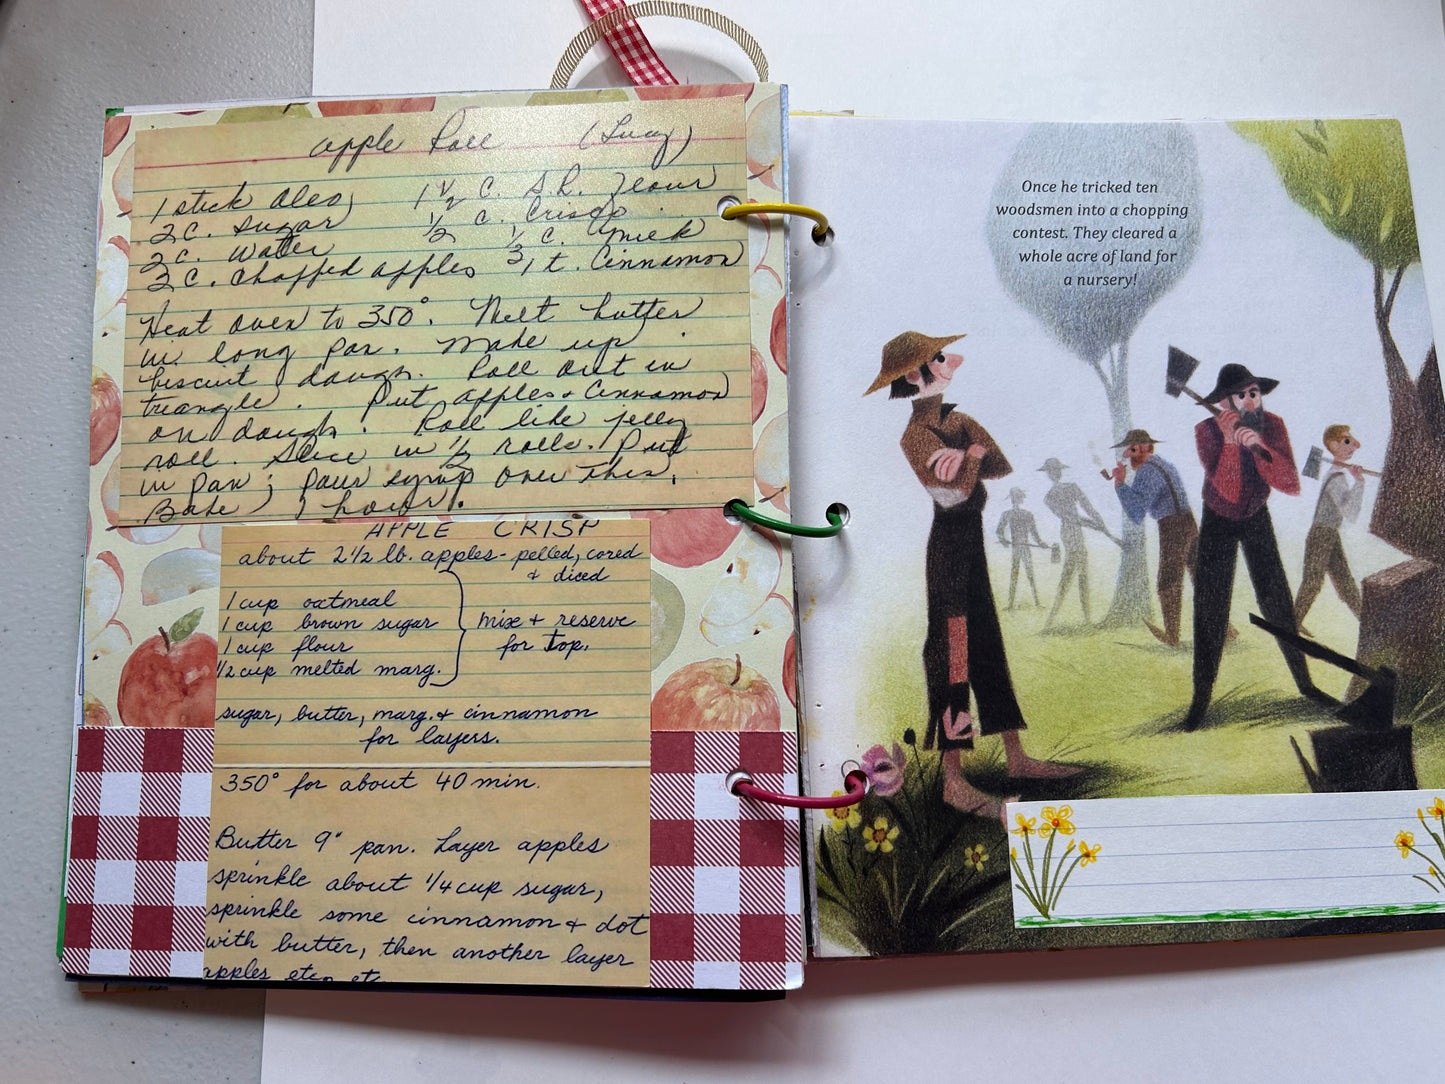 apple Roll (Lucy)
1 stick oleo 1 1/2 c. S.R. Flour
2 c. sugar 1/2 c. Crisco
2 c. water 1/3 c. milk
2 c. chopped apples 1 t. Cinnamon
Heat oven to 350°. Melt butter
in long pan. Make up
biscuit dough. Roll out in
triangle. Put apples + Cinnamon
on dough. Roll like jelly
roll. Slice in 1/2 rolls. Put
in pan; pour syrup over this.
Bake 1 hour.
APPLE CRISP
about 2 1/2 lb. apples - pelled, cored
& diced
1 cup oatmeal
1 cup brown sugar
1 cup flour
1/2 cup melted marg.
mix + reserve
for top.
sugar, butter, marg. & cinnamon
for layers.
350° for about 40 min.
Butter 9" pan. Layer apples
sprinkle about 1/4 cup sugar,
sprinkle some cinnamon & dot
with butter, then another layer
apples etc. etc.
Once he tricked ten
woodsmen into a chopping
contest. They cleared a
whole acre of land for
a nursery!